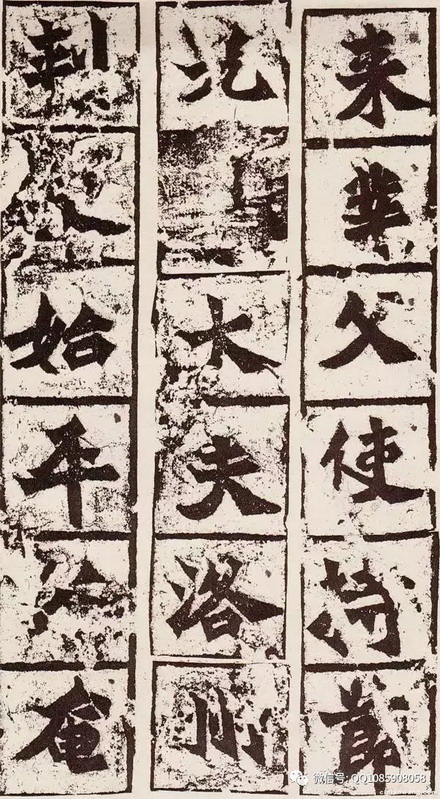 来業父使持節
光大夫洛州
刺史始平公奄
微信号: QQ1085908058